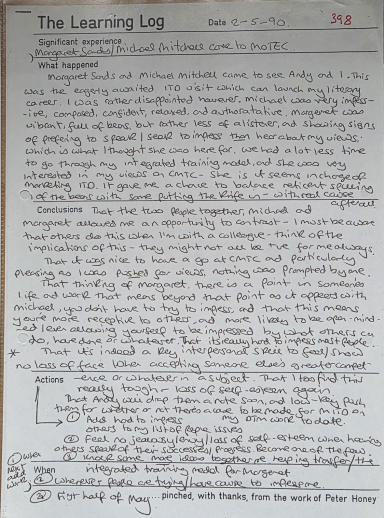 The Learning Log Date 2-5-90. 398
Significant experience
Margaret Sands/Michael Mitchell came to MOTEC
What happened
Margaret Sands and Michael Mitchell came to see Andy and I. This
was the eagerly awaited ITD visit which can launch my literary
career. I was rather disappointed however, Michael was very impress-
ive, composed, confident, relaxed, and authoratative, Margaret was
vibrant, full of beans, but rather less of a listener, and showing signs
of prefering to speak/seek to impress than hear about my views,
which is what I thought she was here for, we had a lot less time
to go through my integrated training model, and she was very
interested in my views on CMTC - She is it seems in charge of
marketing ITD. It gave me a chance to balance reticent spilling
of the beans with some putting the knife in - with real cause
after all
Conclusions That the two people together, Michael and
Margaret allowed me an opportunity to contrast - I must be aware
that others do this when I'm with a colleague - think of the
implications of this - they might not all be true for me always.
That it was nice to have a go at CMTC and particularly
pleasing as I was pushed for views, nothing was prompted by me.
That thinking of Margaret, there is a point in someones
life and work that means beyond that point as it appears with
Michael, you don't have to try to impress, and that this means
you're more receptive to others, and more likely to be open-mind-
ed even allowing yourself to be impressed by what others can
do, have done or whatever. That its really hard to impress most people.
* That it's indeed a key interpersonal skill to feel/show
no loss of face when accepting someone else's greater compet-
Actions -ence or whatever in a subject. That I too find this
really tough - loss of self-esteem again
That Andy will drop them a note soon, and low-key push
them for whether or not there's a case to be made for M ITD on
① Add hard to impress my DTM work to date.
others to my list of people issues
② Feel no jealousy/envy/loss of self-esteem when hearing
others speak of their successes/progress. Become one of the few.
③ Knock some more ideas together re helping transfer/the
When integrated training model for Margaret
① When
next
add
work
② Wherever people are trying/have cause to impress me.
③ First half of May
...pinched, with thanks, from the work of Peter Honey